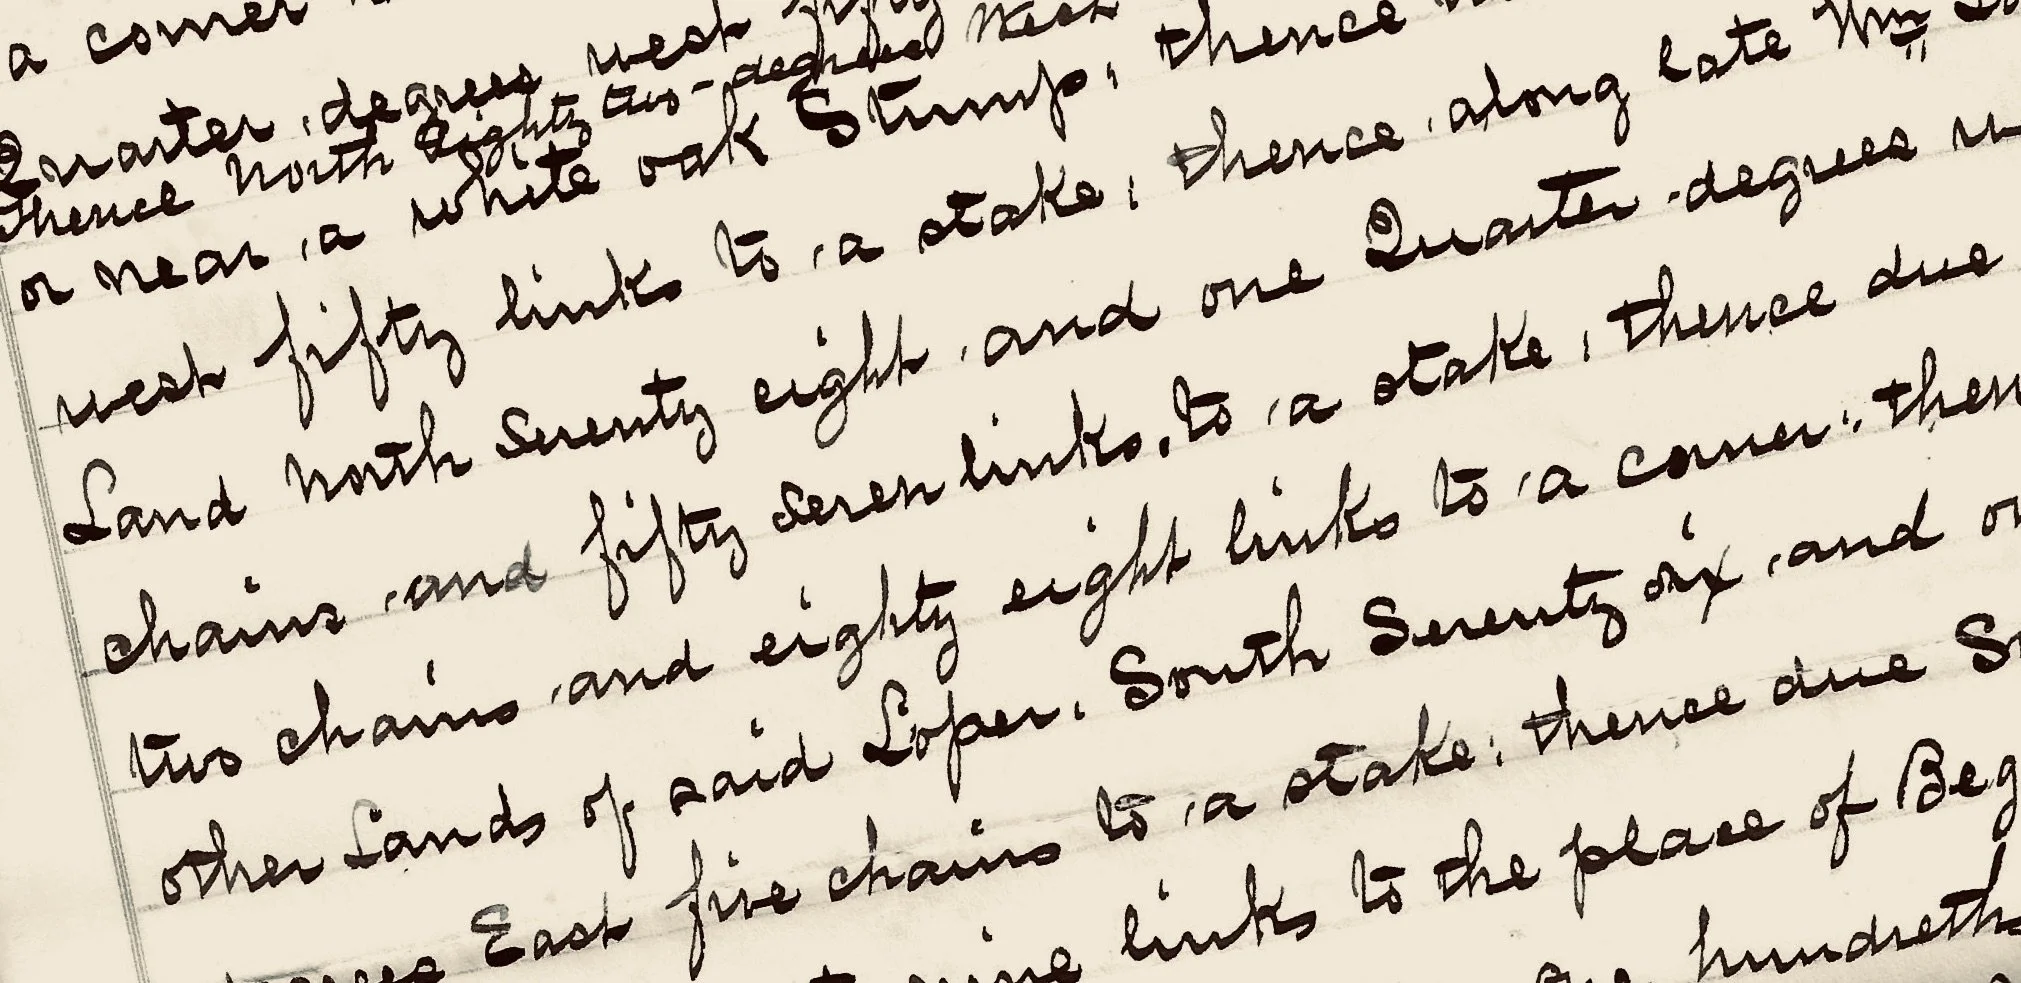 a corner
Quarter degrees west fifty
thence North Eighty two degrees West
or near a white oak Stump, thence
west fifty links to a stake, thence along late Wm
Land North Seventy eight and one Quarter degrees
chains and fifty seven links, to a stake, thence due
two chains and eighty eight links to a corner, then
other Lands of said Loper, South Seventy six and
East five chains to a stake, thence due
nine links to the place of Beg
hundreths